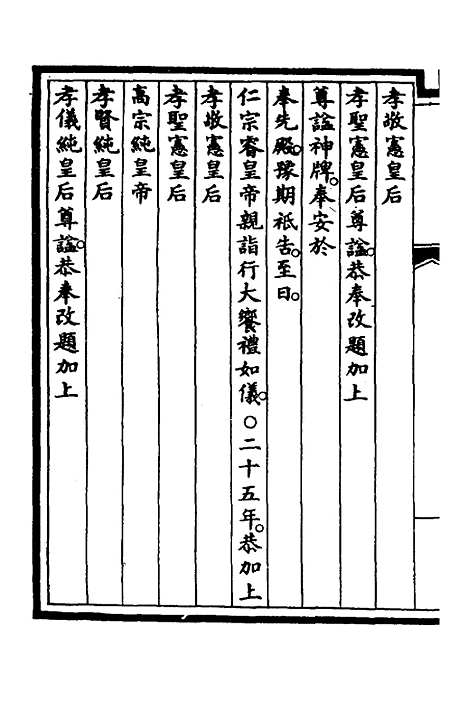 孝敬憲皇后
孝聖憲皇后尊諡。恭奉改題加上
尊諡神牌。奉安於
奉先殿。豫期祗告。至日。
仁宗睿皇帝親詣行大饗禮如儀。○二十五年。恭加上
孝敬憲皇后
孝聖憲皇后
高宗純皇帝
孝賢純皇后
孝儀純皇后尊諡。恭奉改題加上